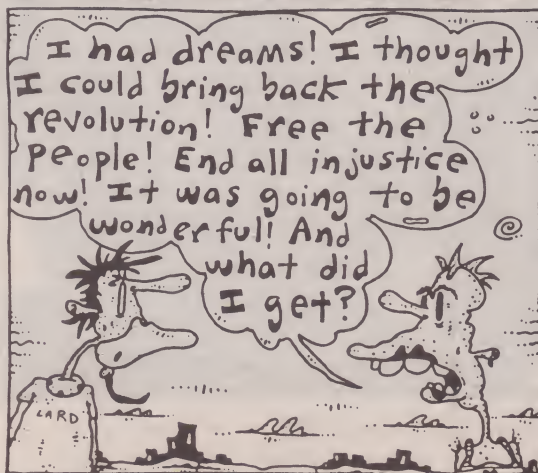 I had dreams! I thought
I could bring back the
revolution! Free the
people! End all injustice
now! It was going to be
wonderful! And
what did
I get?
LARD